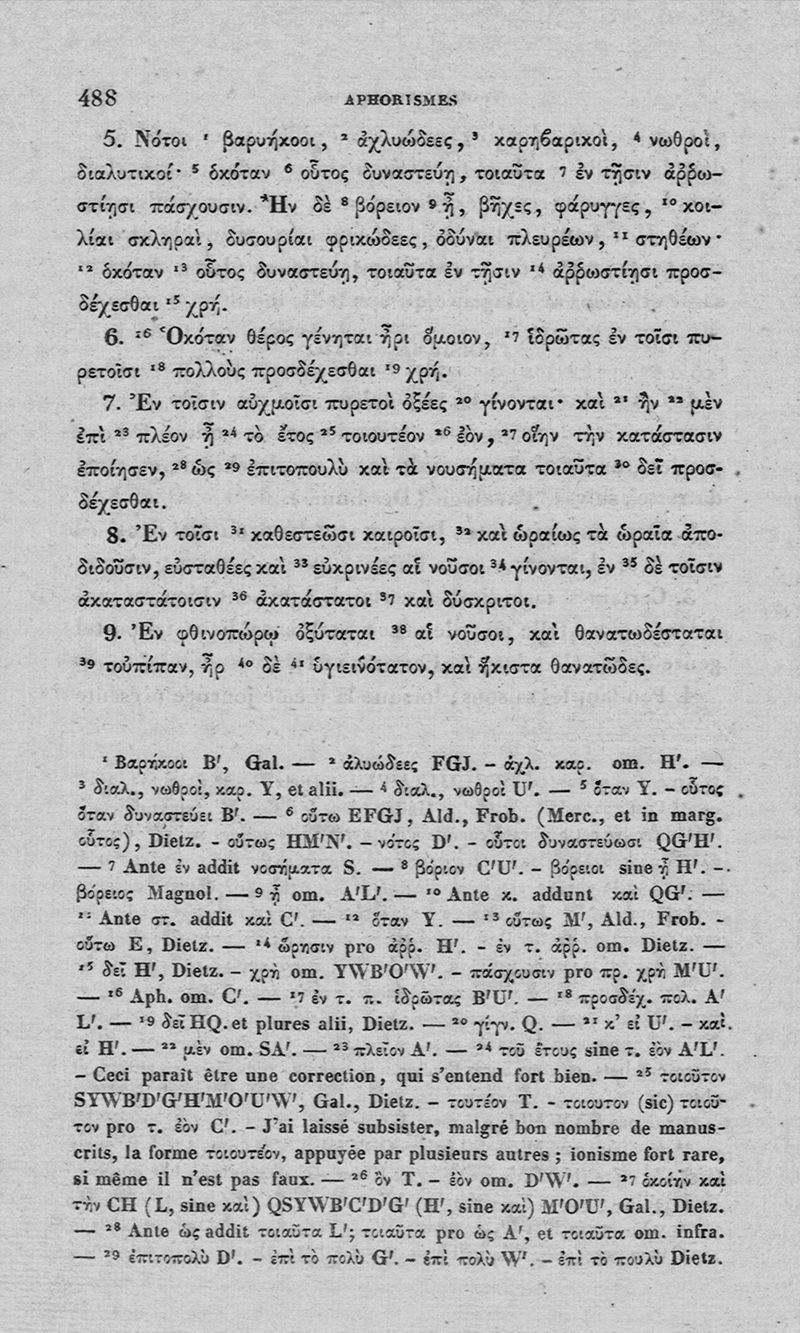 488 APHORISMES
5. Νότοι ¹ βαρυήκοοι, ² ἀχλυώδεες, ³ καρηϐαρικοὶ, ⁴ νωθροὶ,
διαλυτικοί· ⁵ ὁκόταν ⁶ οὗτος δυναστεύῃ, τοιαῦτα ⁷ ἐν τῇσιν ἀῤῥω-
στίῃσι πάσχουσιν. Ἢν δὲ ⁸ βόρειον ⁹ ᾖ, βῆχες, φάρυγγες, ¹⁰ κοι-
λίαι σκληραὶ, δυσουρίαι φρικώδεες, ὀδύναι πλευρέων, ¹¹ στηθέων·
¹² ὁκόταν ¹³ οὗτος δυναστεύῃ, τοιαῦτα ἐν τῇσιν ¹⁴ ἀῤῥωστίῃσι προσ-
δέχεσθαι ¹⁵ χρή.
6. ¹⁶ Ὁκόταν θέρος γένηται ἦρι ὅμοιον, ¹⁷ ἱδρῶτας ἐν τοῖσι πυ-
ρετοῖσι ¹⁸ πολλοὺς προσδέχεσθαι ¹⁹ χρή.
7. Ἐν τοῖσιν αὐχμοῖσι πυρετοὶ ὀξέες ²⁰ γίνονται· καὶ ²¹ ἢν ²² μὲν
ἐπὶ ²³ πλέον ᾖ ²⁴ τὸ ἔτος ²⁵ τοιουτέον ²⁶ ἐὸν, ²⁷ οἵην τὴν κατάστασιν
ἐποίησεν, ²⁸ ὡς ²⁹ ἐπιτοπουλὺ καὶ τὰ νουσήματα τοιαῦτα ³⁰ δεῖ προσ-
δέχεσθαι.
8. Ἐν τοῖσι ³¹ καθεστεῶσι καιροῖσι, ³² καὶ ὡραίως τὰ ὡραῖα ἀπο-
διδοῦσιν, εὐσταθέες καὶ ³³ εὐκρινέες αἱ νοῦσοι ³⁴ γίνονται, ἐν ³⁵ δὲ τοῖσιν
ἀκαταστάτοισιν ³⁶ ἀκατάστατοι ³⁷ καὶ δύσκριτοι.
9. Ἐν φθινοπώρῳ ὀξύταται ³⁸ αἱ νοῦσοι, καὶ θανατωδέσταται
³⁹ τοὐπίπαν, ἦρ ⁴⁰ δὲ ⁴¹ ὑγιεινότατον, καὶ ἥκιστα θανατῶδες.
¹ Βαρήκοοι B′, Gal. — ² ἀλυώδεες FGJ. - ἀχλ. καρ. om. H′. —
³ διαλ., νωθροὶ, καρ. Y, et alii. — ⁴ διαλ., νωθροὶ U′. — ⁵ ὅταν Y. - οὗτος
ὅταν δυναστεύει B′. — ⁶ οὕτω EFGJ, Ald., Frob. (Merc., et in marg.
οὗτος), Dietz. - οὕτως HM′N′. - νότος D′. - οὗτοι δυναστεύωσι QG′H′.
— ⁷ Ante ἐν addit νοσήματα S. — ⁸ βόριον C′U′. - βόρειοι sine ᾖ H′. -
βόρειος Magnol. — ⁹ ᾖ om. A′L′. — ¹⁰ Ante κ. addunt καὶ QG′. —
¹¹ Ante στ. addit καὶ C′. — ¹² ὅταν Y. — ¹³ οὕτως M′, Ald., Frob. -
οὕτω E, Dietz. — ¹⁴ ὥρησιν pro ἀῤῥ. H′. - ἐν τ. ἀῤῥ. om. Dietz. —
¹⁵ δεῖ H′, Dietz. - χρὴ om. YWB′O′W′. - πάσχουσιν pro πρ. χρὴ M′U′.
— ¹⁶ Aph. om. C′. — ¹⁷ ἐν τ. π. ἱδρῶτας B′U′. — ¹⁸ προσδέχ. πολ. A′
L′. — ¹⁹ δεῖ HQ. et plures alii, Dietz. — ²⁰ γίγν. Q. — ²¹ κ’ εἰ U′. - καὶ
εἰ H′. — ²² μὲν om. SA′. — ²³ πλεῖον A′. — ²⁴ τοῦ ἔτους sine τ. ἐὸν A′L′.
- Ceci paraît être une correction, qui s’entend fort bien. — ²⁵ τοιοῦτον
SYWB′D′G′H′M′O′U′W′, Gal., Dietz. - τουτέον T. - τοιουτον (sic) τοιοῦ-
τον pro τ. ἐὸν C′. - J’ai laissé subsister, malgré bon nombre de manus-
crits, la forme τοιουτέον, appuyée par plusieurs autres ; ionisme fort rare,
si même il n’est pas faux. — ²⁶ ὂν T. - ἐὸν om. D′W′. — ²⁷ ὁκοίην καὶ
τὴν CH (L, sine καὶ) QSYWB′C′D′G′ (H′, sine καὶ) M′O′U′, Gal., Dietz.
— ²⁸ Ante ὡς addit τοιαῦτα L′; τοιαῦτα pro ὡς A′, et τοιαῦτα om. infra.
— ²⁹ ἐπιτοπολὺ D′. - ἐπὶ τὸ πολὺ G′. - ἐπὶ πολὺ W′. - ἐπὶ τὸ πουλὺ Dietz.